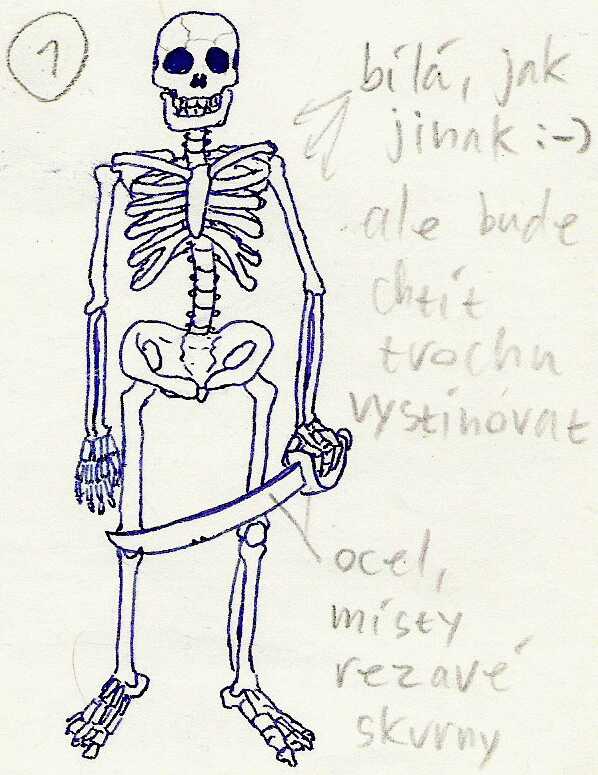 1
bílá, jak
jinak :-)
ale bude
chtít
trochu
vystínovat
ocel,
místy
rezavé
skvrny